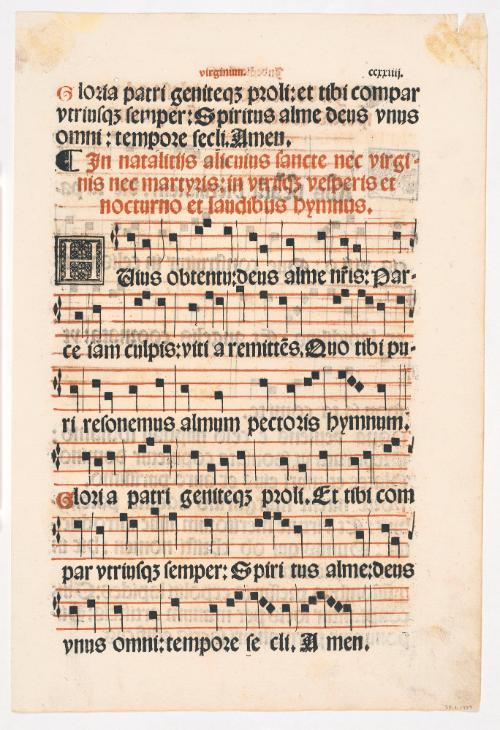 virginum. ccxxiiij.
Gloria patri geniteqz proli: et tibi compar
vtriusqz semper: Spiritus alme deus vnus
omni: tempore secli. Amen.
¶ In natalitijs alicuius sancte nec virgi-
nis nec martyris: in vtrisqz vesperis et
nocturno et laudibus hymnus.
HUius obtentu: deus alme nr̄is: Par-
ce iam culpis: viti a remittēs, Quo tibi pu-
ri resonemus almum pectoris hymnum.
Glori a patri geniteqz proli. Et tibi com
par vtriusqz semper: Spiri tus alme: deus
vnus omni: tempore se cli. A men.